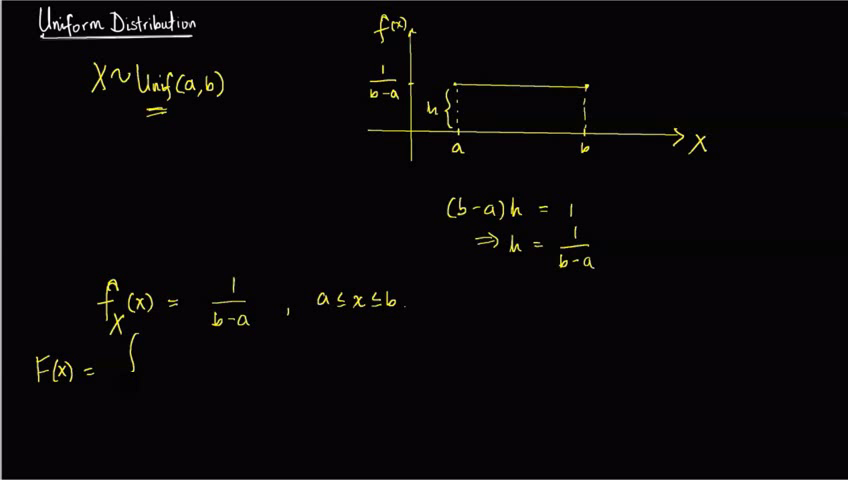 Uniform Distribution
X ~ Unif(a,b)
f(x)
1/(b-a)
h {
a b X
(b-a)h = 1
⇒ h = 1/(b-a)
f_X(x) = 1/(b-a) , a ≤ x ≤ b.
F(x) = ∫